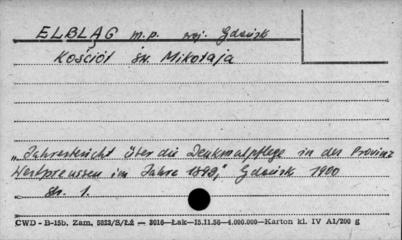 ELBLĄG m.p. woj. Gdańsk
Kościół św. Mikołaja
„Jahresbericht über die Denkmalpflege in der Provinz
Westpreussen im Jahre 1899," Gdańsk 1900
str. 1.
CWD - B-15b, Zam, 5822/S/Łż — 3016—Łak—15.11.56—4.000.000—Karton kl. IV A1/200 g